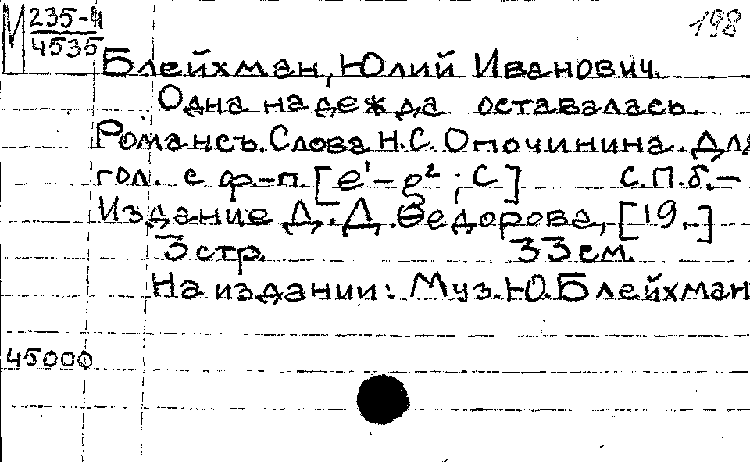 М 235-4
4535
198
Блейхман, Юлий Иванович.
Одна надежда осталась.
Романсъ. Слова Н.С. Опочинина. Для
гол. с ф-п. [e¹-g²; C] С.П.б.-
Издание Д.Д. Ѳедорова, [19..]
3 стр. 33 см.
На издании: Муз. Ю. Блейхман
45000